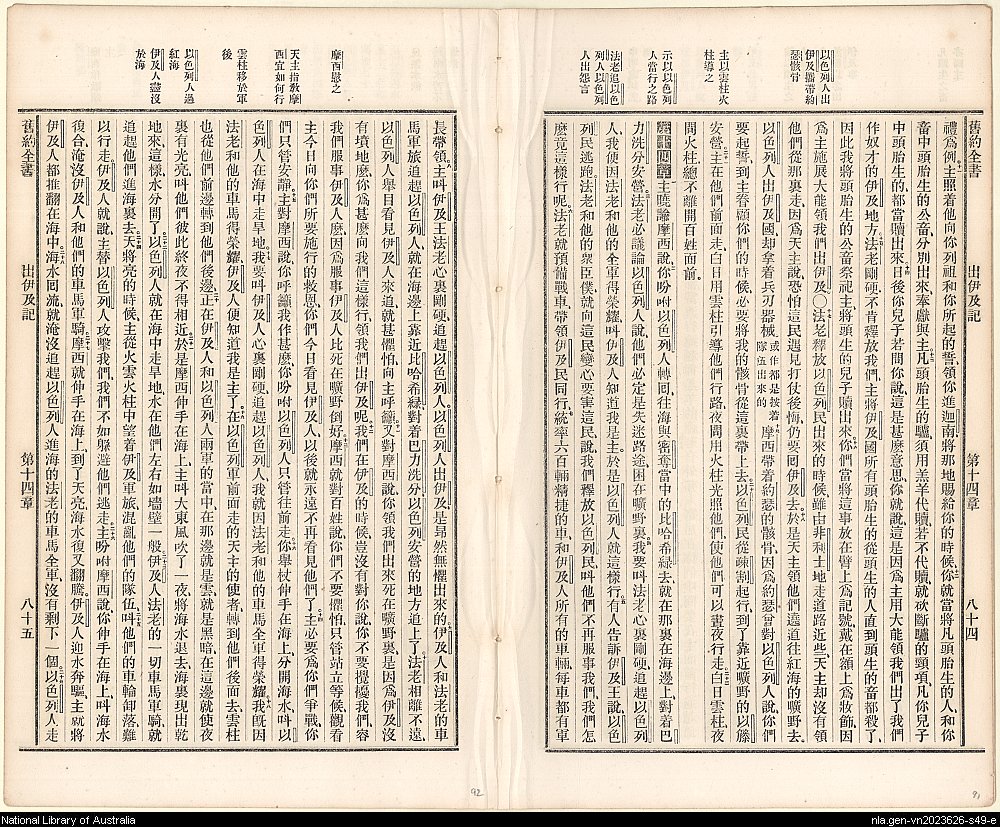 以色列人出
伊及攜帶約
瑟骸骨
主以雲柱火
柱導之
示以以色列
人當行之路
法老追以色
列人以色列
人出怨言
舊約全書 出伊及記 第十四章 八十四
禮爲例、主照着他向你列祖和你所起的誓、領你進迦南、將那地賜給你的時候、你就當將凡頭胎生的人、和你
畜中頭胎生的公畜、分別出來奉獻與主、凡頭胎生的驢、須用羔羊代贖、若不代贖、就砍斷驢的頸項、凡你兒子
中頭胎生的、都當贖出來、日後你兒子若問你說、這是甚麼意思、你就說、這是因爲主用大能領我們出了我們
作奴才的伊及地方、法老剛硬不肯釋放我們、主將伊及國所有頭胎生的、從頭生的人直到頭生的畜都殺了、
因此我將頭胎生的公畜祭祀主、將頭生的兒子贖出來、你們當將這事放在臂上爲記號、戴在額上爲妝飾、因
爲主施展大能領我們出伊及○法老釋放以色列民出來的時候、雖由非利士地走道路近些、天主卻沒有領
他們從那裏走、因爲天主說、恐怕這民遇見打仗後悔、仍要囘伊及去、於是天主領他們遶道往紅海的曠野去、
以色列人出伊及國、却拿着兵刃器械或作都是按着隊伍出來的摩西帶着約瑟的骸骨、因爲約瑟曾對以色列人說、你們
要起誓、到主眷顧你們的時候、必要將我的骸骨從這裏帶上去、以色列民從疎割起行、到了靠近曠野的以簾
安營、主在他們前面走、白日用雲柱引導他們行路、夜間用火柱光照他們、使他們可以晝夜行走、白日雲柱、夜
間火柱、總不離開百姓面前、
第十四章主曉諭摩西說、你吩咐以色列人轉囘、往海與密奪當中的比哈希錄去、就在那裏在海邊上、對着巴
力洗分安營、法老必議論以色列人說、他們必定是失迷路途、困在曠野裏、我要叫法老心裏剛硬、追趕以色列
人、我便因法老和他的全軍得榮耀、叫伊及人知道我是主、於是以色列人就這樣行、有人告訴伊及王說、以色
列民逃跑、法老和他的衆臣僕就向這民變心、要害這民、說、我們釋放以色列民、叫他們不再服事我們、我們怎
麼竟這樣行呢、法老就預備戰車、帶領伊及民同行、統率六百輛精捷的車、和伊及人所有的車輛、每車都有軍
摩西慰之
天主指敎摩
西宜如何行
雲柱移於軍
後
以色列人過
紅海
伊及人盡沒
於海
長帶領、主叫伊及王法老心裏剛硬、追趕以色列人、以色列人出伊及是昂然無懼出來的、伊及人和法老的車
馬軍旅追趕以色列人、就在海邊上靠近比哈希錄、對着巴力洗分以色列安營的地方追上了、法老相離不遠、
以色列人舉目看見伊及人來追、就甚懼怕、向主呼籲、又對摩西說、你領我們出來死在曠野、裏是因爲伊及沒
有墳地麼、你爲甚麼向我們這樣行、領我們出伊及呢、我們在伊及的時候、豈沒有對你說、你不要攪擾我們、容
我們服事伊及人麼、因爲服事伊及人、比死在曠野倒好、摩西就對百姓說、你們不要懼怕、只管站立、等候觀看
主今日向你們所要施行的救恩、你們今日看見伊及人、以後就永遠不再看見他們了、主必要爲你們爭戰、你
們只管安靜、主對摩西說、你呼籲我作甚麼、你吩咐以色列人只管往前走、你舉杖伸手在海上、分開海水、叫以
色列人在海中走旱地、我要叫伊及人心裏剛硬、追趕以色列人、我就因法老和他的車馬全軍得榮耀、我旣因
法老和他的車馬得榮耀、伊及人便知道我是主了、在以色列軍前面走的天主的使者、轉到他們後面去、雲柱
也從他們前邊轉到他們後邊、正在伊及人和以色列人兩軍的當中、在那邊就是雲、就是黑暗、在這邊就使夜
裏有光亮、叫他們彼此終夜不得相近、於是摩西伸手在海上、主叫大東風吹了一夜、將海水退去、海裏現出乾
地來、這樣水分開了、以色列人就在海中走旱地、水在他們左右如墻壁一般、伊及人法老的一切車馬軍騎就
追趕他們、進海裏去、天將亮的時候、主從火雲火柱中望着伊及軍旅、混亂他們的隊伍、叫他們的車輪卸落、難
以行走、伊及人就說、主替以色列人攻擊我們、我們不如躲避他們逃走、主吩咐摩西說、你伸手在海上、叫海水
復合、淹沒伊及人和他們的車馬軍騎、摩西就伸手在海上、到了天亮、海水復又翻騰、伊及人迎水奔驅、主就將
伊及人都推翻在海中、海水囘流、就淹沒追趕以色列人進海的法老的車馬全軍、沒有剩下一個、以色列人走
舊約全書 出伊及記 第十四章 八十五
92
91
National Library of Australia
nla.gen-vn2023626-s49-e